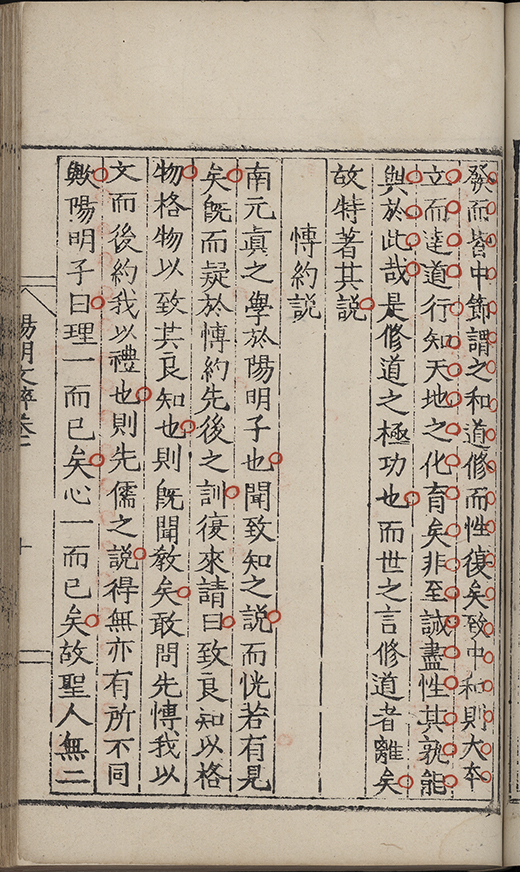 發而皆中節謂之和道修而性復矣致中和則大本
立而達道行知天地之化育矣非至誠盡性其孰能
與於此哉是修道之極功也而世之言修道者離矣
故特著其說
愽約說
南元眞之學於陽明子也聞致知之說而恍若有見
矣旣而疑於愽約先後之訓復來請曰致良知以格
物格物以致其良知也則旣聞敎矣敢問先愽我以
文而後約我以禮也則先儒之說得無亦有所不同
歟陽明子曰理一而已矣心一而已矣故聖人無二
陽明文粹卷二
十